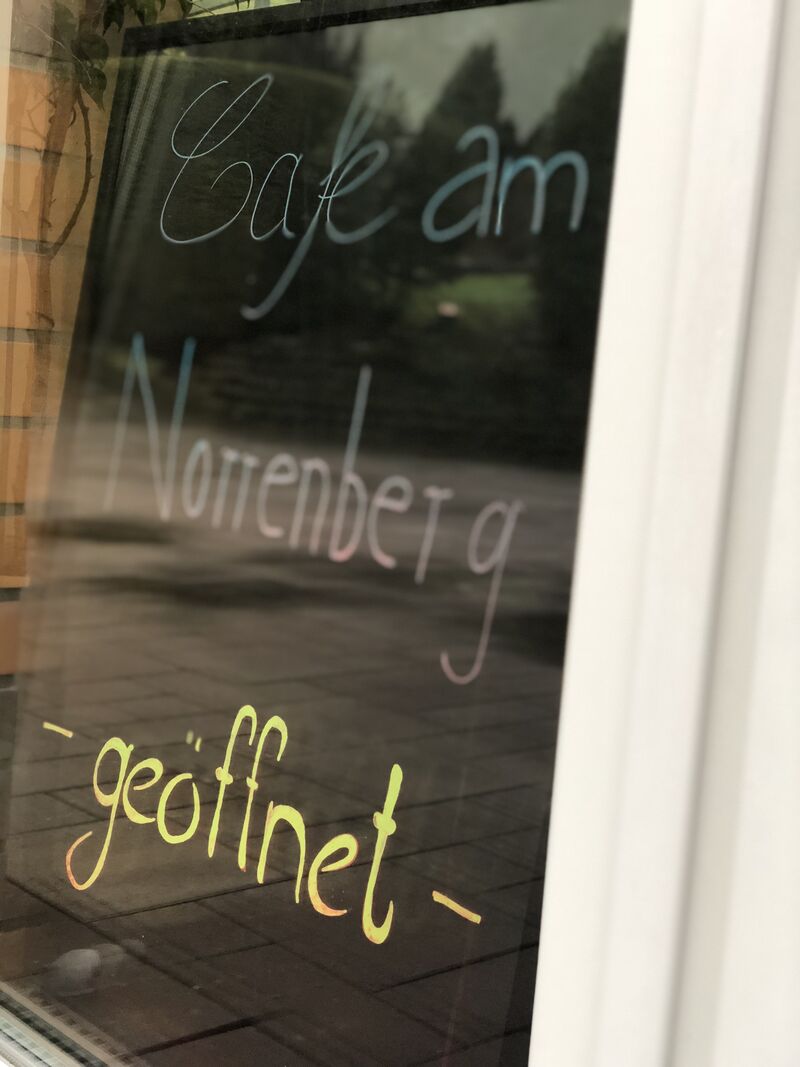 Cafe am
Norrenberg
- geöffnet -